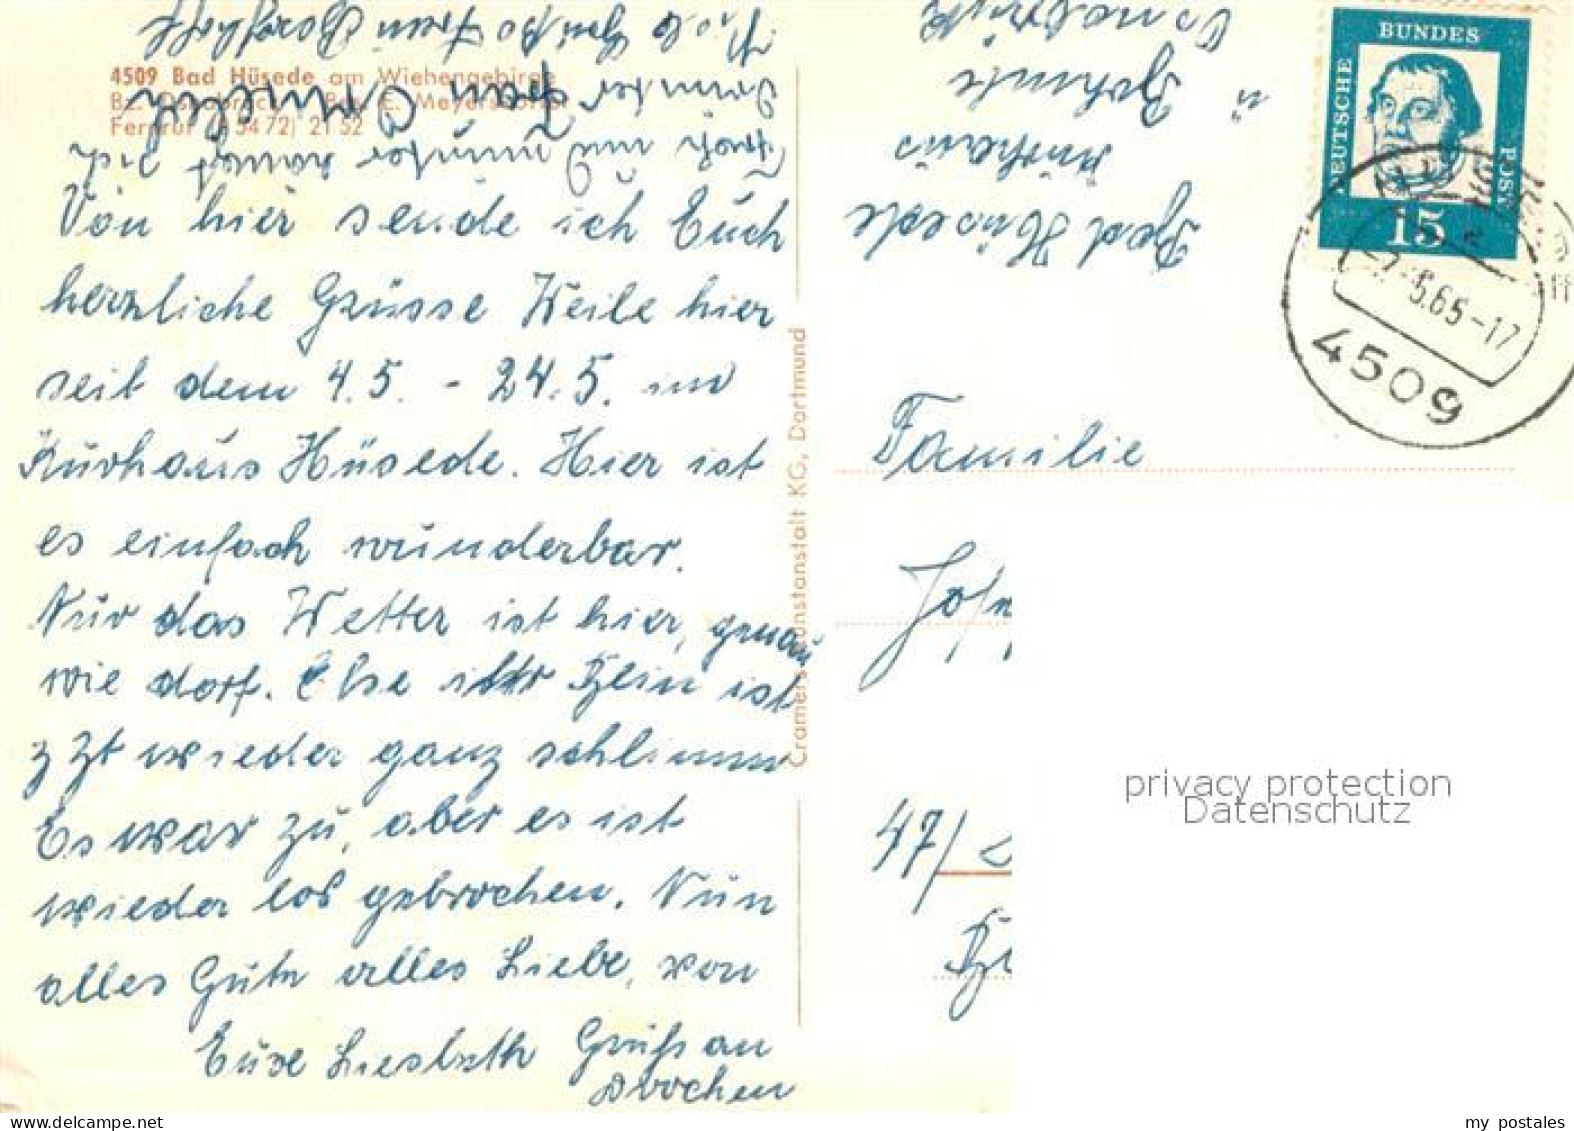 4509 Bad Hüsede am Wiehengebirge
Bz. Osnabrück Bes. E. Meyer
Fernruf (05472) 2152
Von hier sende ich Euch
herzliche Grüsse Weile hier
seit dem 4.5. - 24.5. im
Kurhaus Hüsede. Hier ist
es einfach wunderbar.
Nur das Wetter ist hier, genau
wie dort. Else ihr Bein ist
z Zt wieder ganz schlimm
Es war zu, aber es ist
wieder los gebrochen. Nun
alles Gute alles Liebe, von
Eure Liesbeth Gruß an
Drochen
Frisch und munter kommt sich
drunter Frau
Viele Grüße Frau
Cramers Kunstanstalt KG, Dortmund
Bad Hüsede
Kurhaus
u
Osnabrück
DEUTSCHE
BUNDES
POST
15
65-17
4509
Familie
47/
privacy protection
Datenschutz
my postales